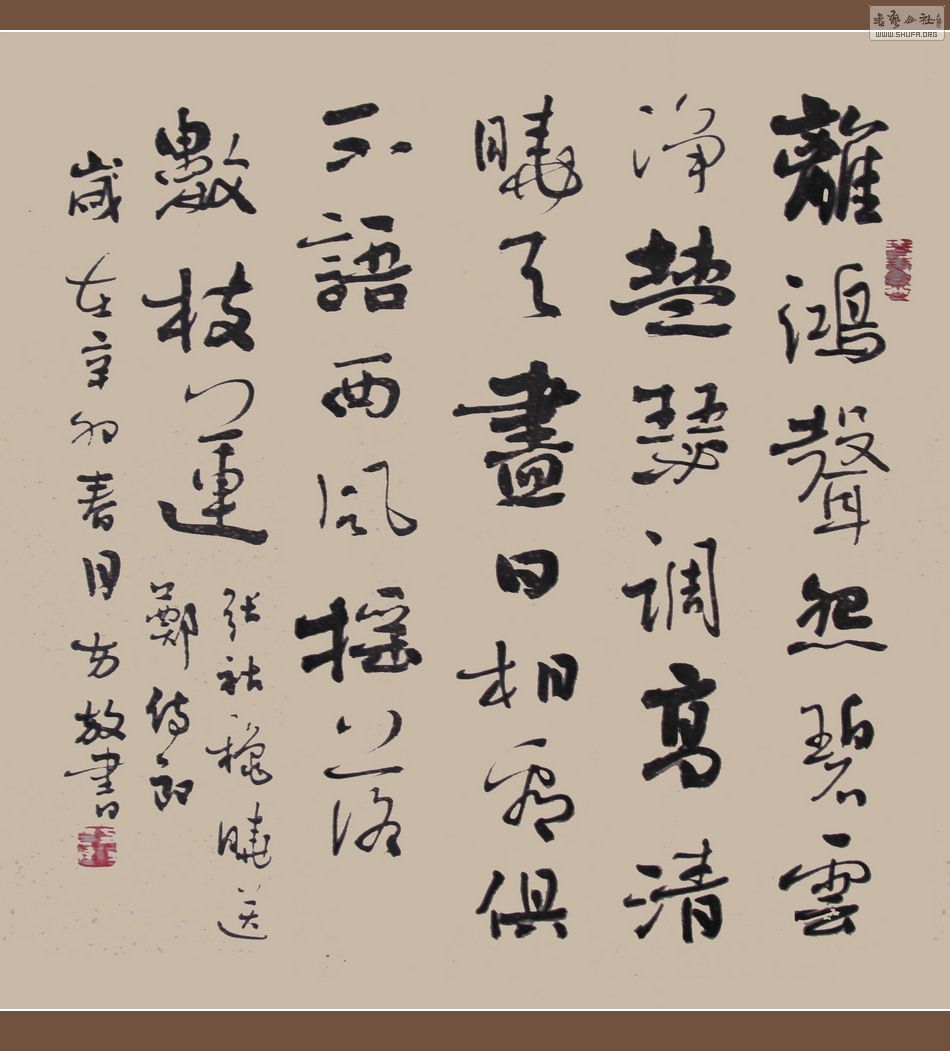 離鴻聲怨碧雲
淨楚瑟調高清
曉天盡日相看俱
不語西風摇落
數枝蓮
張祜穐曉送
鄭侍郎
歲在辛卯春月方放書
書藝公社
WWW.SHUFA.ORG